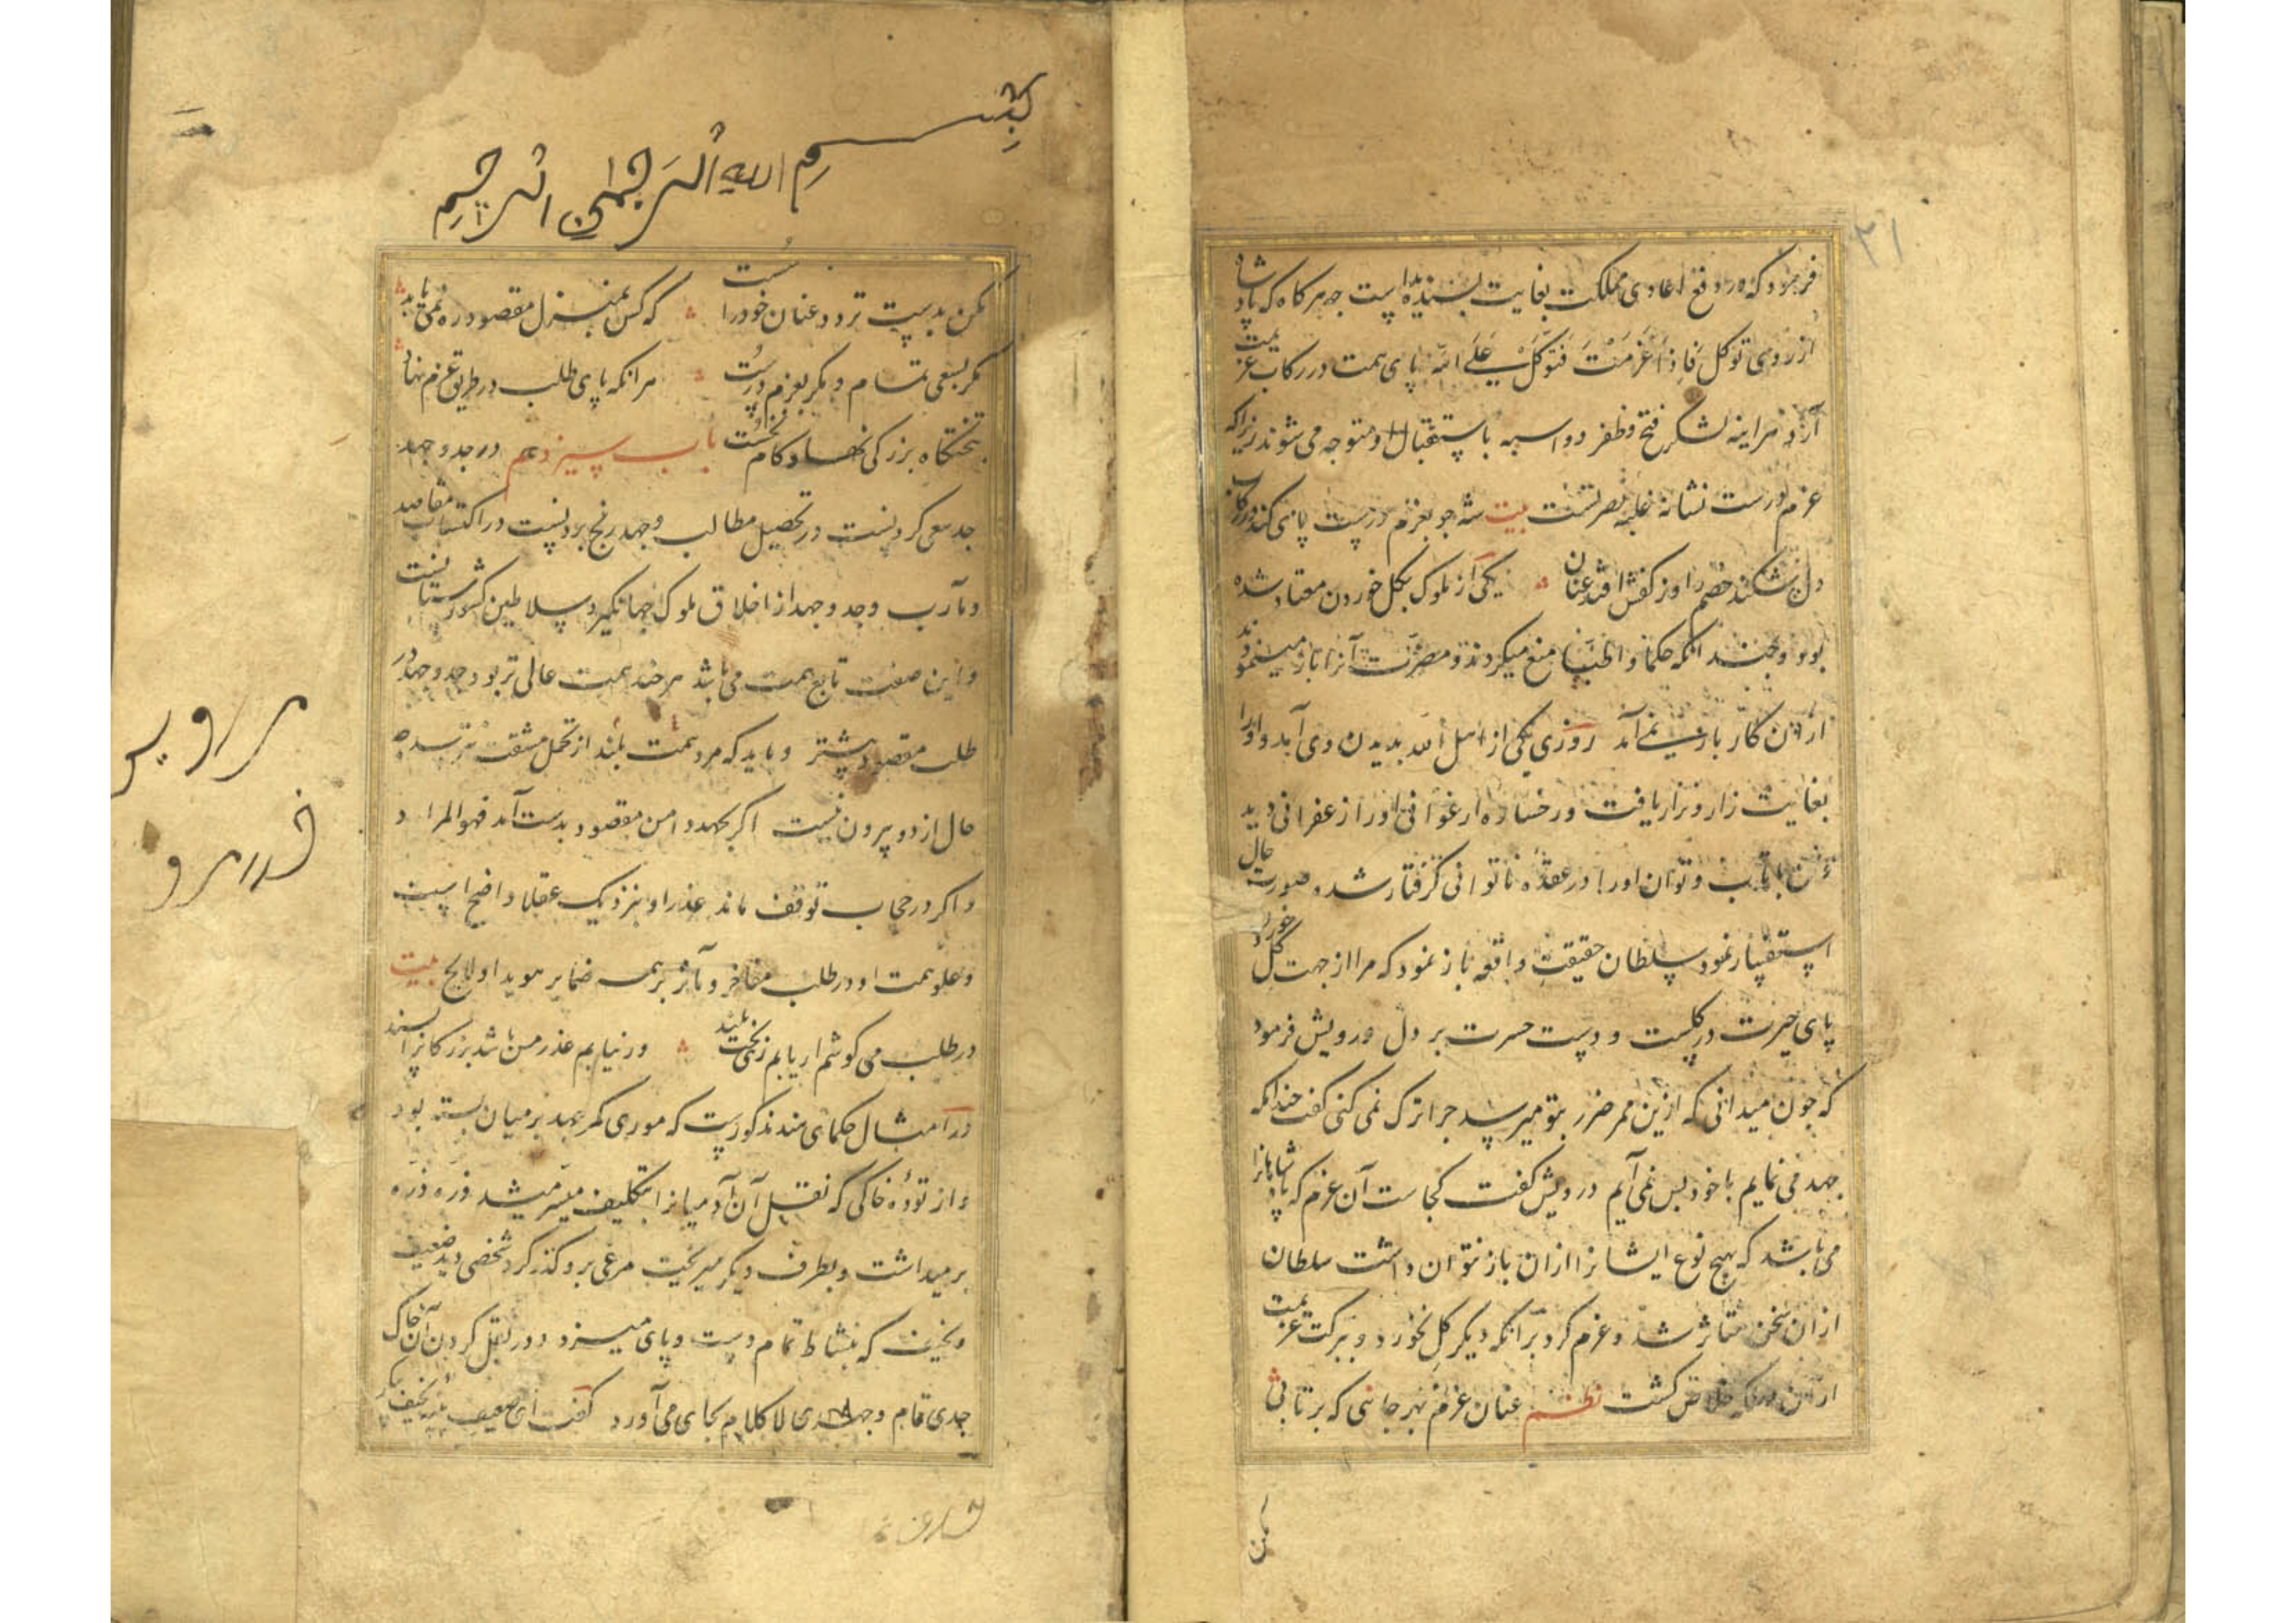 ۳۱
فرمود که در دفع اعادی مملکت بغایت پسندیده است جه هرکاه که پادشاه
از روی توکل فَاِذا عَزَمْتَ فَتَوَكَّلْ عَلَى الله پای همت در رکاب عزیمت
آرد هراینه لشکر فتح و ظفر دو اسبه باستقبال او متوجه می شوند زیراکه
عزم درست نشانه غلبه نصرتست بیت شه جو بعزم درست پای کند در رکاب
دل شکند خصم را وز کفش افتد عنان یکی از ملوک بکل خوردن معتاد شده
بود و جند انکه حکما و اطبا منع میکردند و مضرت آنرا باز مینمودند
ازان کار باز نمی آمد روزی یکی از اهل الله بدیدن وی آمد و او را
بغایت زار و نزار یافت و رخساره ارغوانی او را زعفرانی دید
تن با تاب و توان او را در عقده ناتوانی کرفتار شده صورت حال
استفسار نمود سلطان حقیقت واقعه باز نمود که مرا از جهت کل خوردن
پای حیرت در کلست و دست حسرت بر دل درویش فرمود
که جون میدانی که ازین ممر ضرر بتو میرسد جرا ترک نمی کنی کفت جندانکه
جهد می نمایم با خود بس نمی آیم درویش کفت کجاست آن عزم که پادشاهانرا
می باشد که بهیچ نوع ایشانرا ازان باز نتوان داشت سلطان
ازان سخن متاثر شد و عزم کرد برانکه دیکر کل نخورد و ببرکت عزیمت
ازان خلاص کشت نظم عنان عزم بهر جانبی که برتابی
مکن
بسم الله الرحمن الرحیم
مکن بدست تردد عنان خود را سست که کس بمنزل مقصود ره نمی یابد
مکر بسعی تمام و مکر بعزم درست هرانکه پای طلب در طریق عزم نهاد
بتختکاه بزرکی نهاد کام نخست باب سیزدهم در جد و جهد
جد سعی کردنست در تحصیل مطالب و جهد رنج بردنست در اکتساب مقاصد
و مآرب و جد و جهد از اخلاق ملوک جهانکیر و سلاطین کشورستانست
و این صفت تابع همت می باشد هر جند همت عالی تر بود جد و جهد در
طلب مقصود بیشتر و باید که مرد همت بلند از تحمل مشقت نترسد جه
حال از دو بیرون نیست اکر بجهد دامن مقصود بدست آمد فهو المراد
و اکر در حجاب توقف ماند عذر او بنزدیک عقلا واضح است
و علو همت او در طلب مفاخر و مآثر بر همه ضمایر هویدا و لایح بیت
در طلب می کوشم ار یابم زهی بخت بلند ور نیابم عذر من باشد بزرکانرا پسند
در امثال حکمای هند مذکورست که موری کمر جهد بر میان بسته بود
و از توده خاکی که نقل آن آدمیانرا بتکلیف میسر میشد ذره ذره
بر میداشت و بطرف دیکر میریخت مرغی برو کذر کرد شخصی دید ضعیف
و نحیف که بنشاط تمام دست و پای میزد و در نقل کردن آن خاک
جدی تمام و جهدی لاکلام بجای می آورد کفت ای ضعیف نحیف